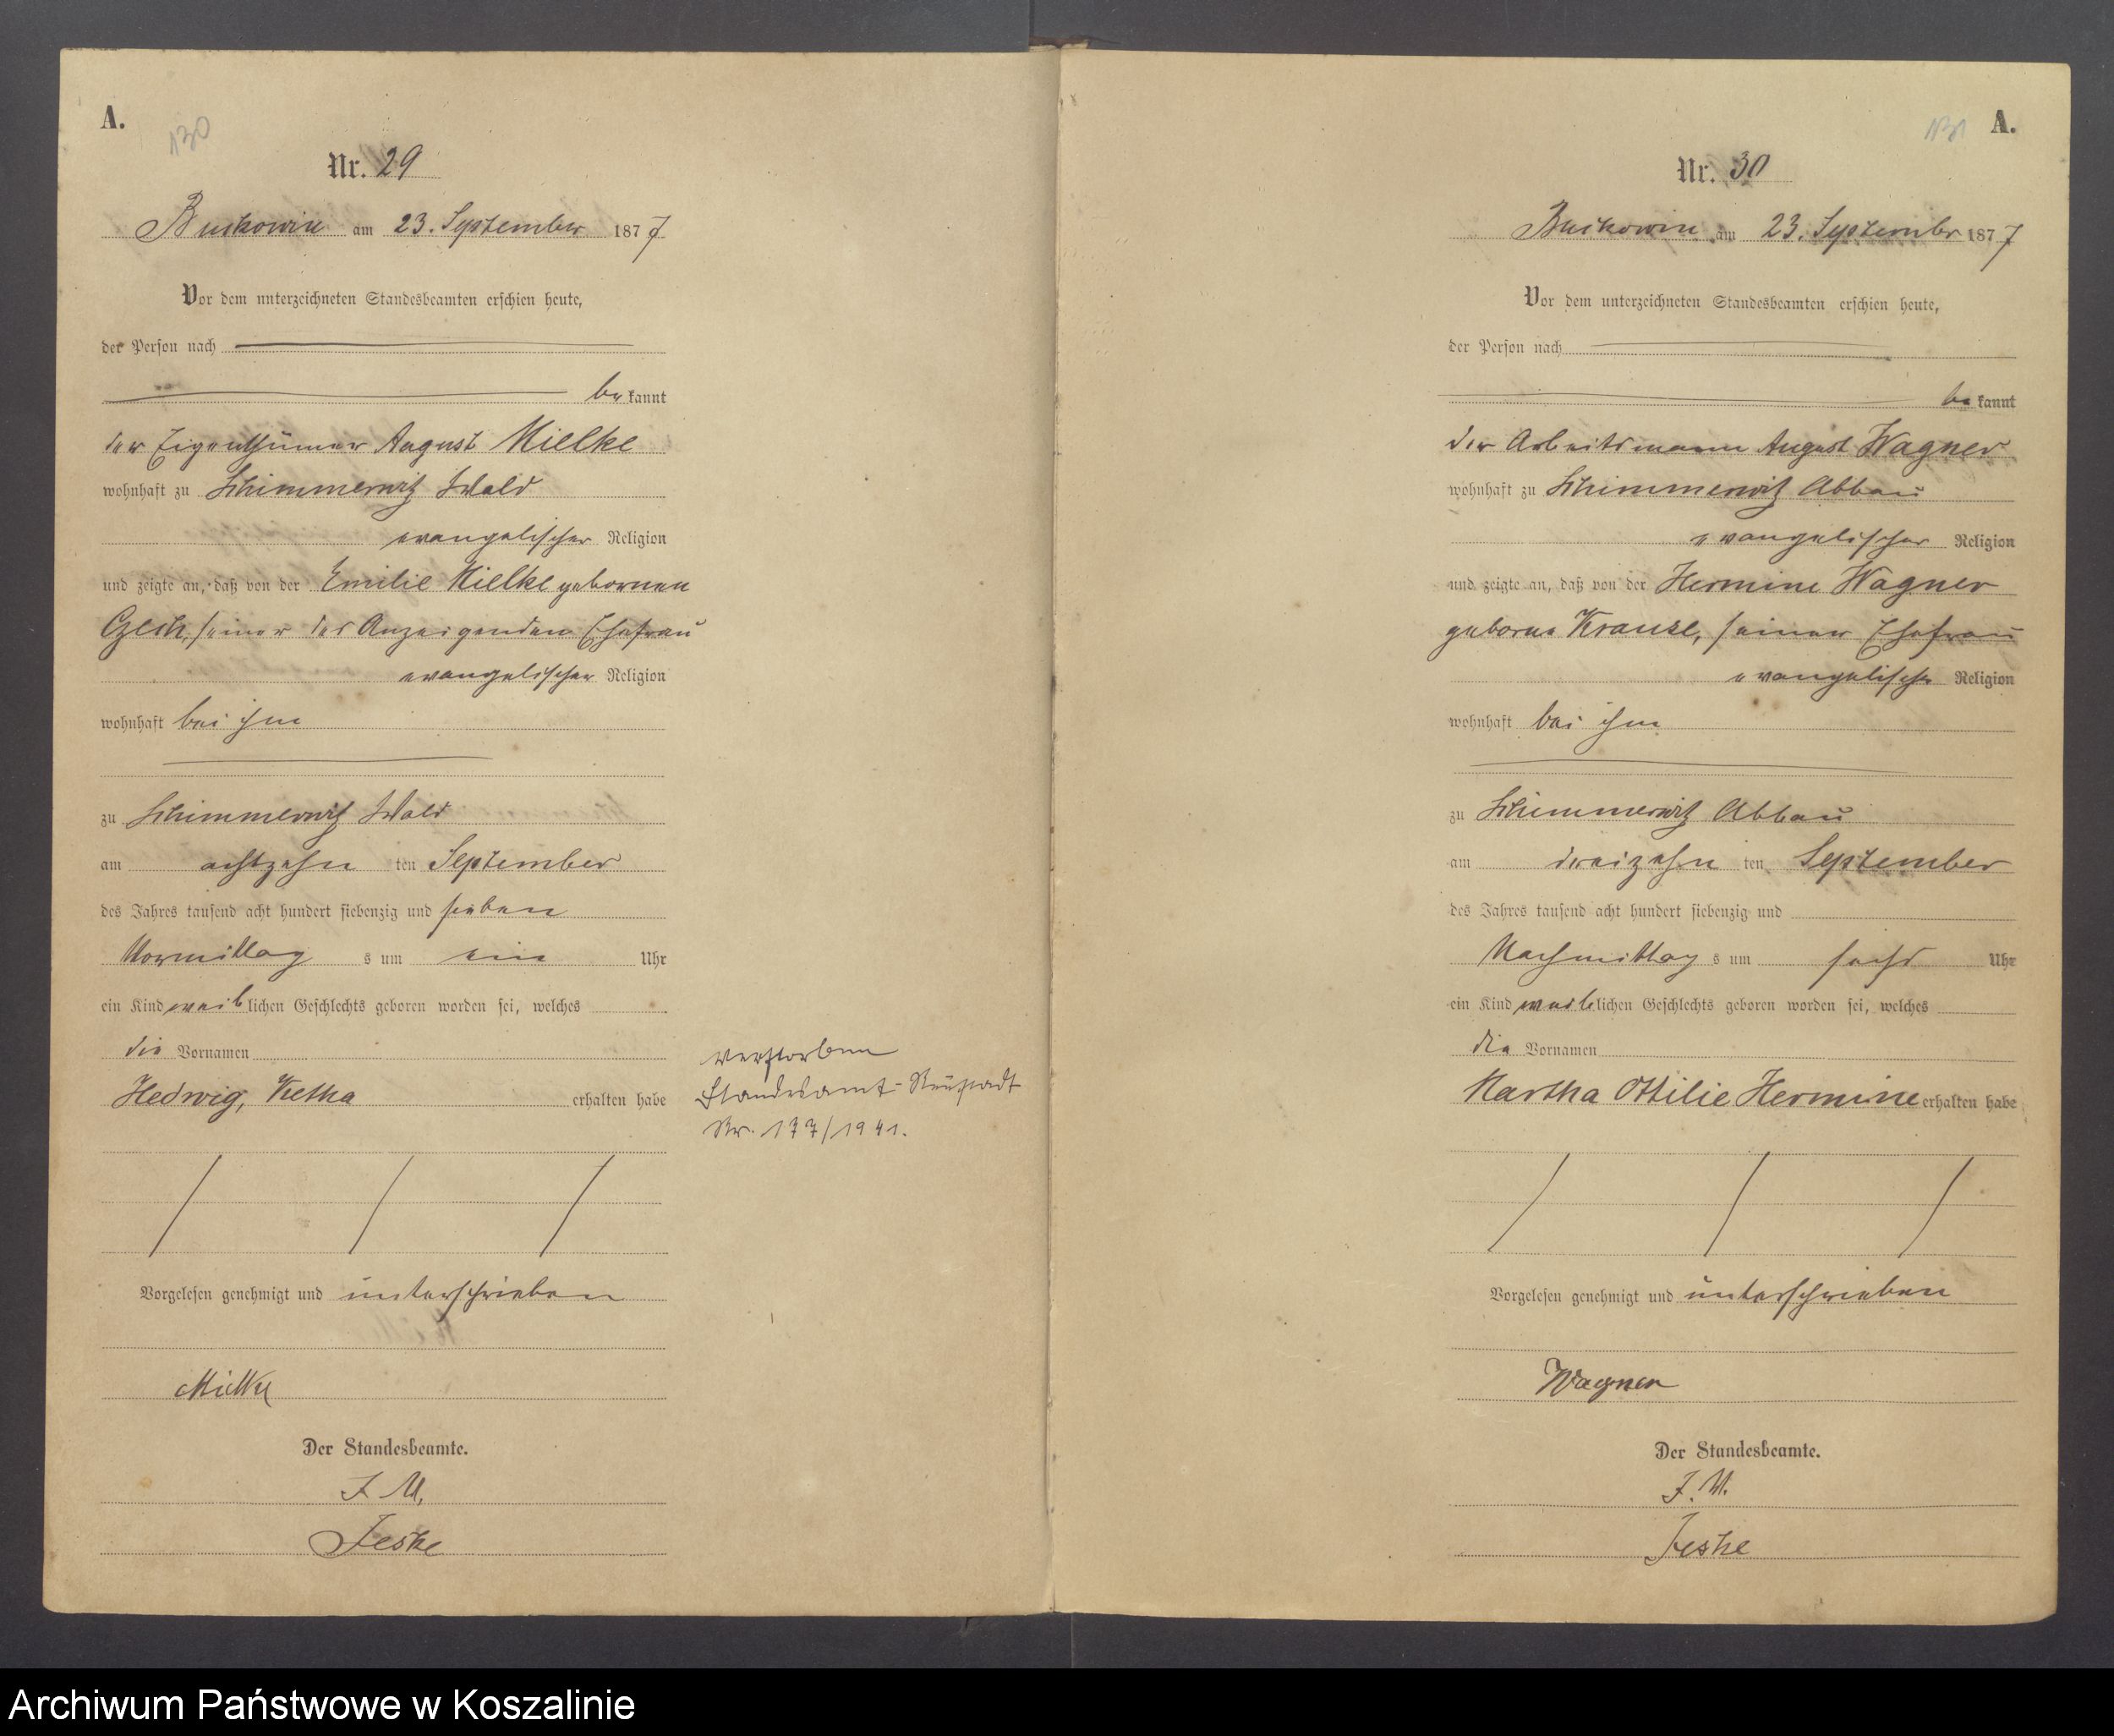 A.
130
Nr. 29
Buckowin am 23. September 1877
Vor dem unterzeichneten Standesbeamten erschien heute,
der Person nach
be kannt
der Eigenthümer August Mielke
wohnhaft zu Schimmerwitz Wald
evangelischer Religion
und zeigte an, daß von der Emilie Mielke gebornen
Czech, seiner des Anzeigenden Ehefrau
evangelischer Religion
wohnhaft bei ihm
zu Schimmerwitz Wald
am achtzehn ten September
des Jahres tausend acht hundert siebenzig und sieben
Vormittag s um ein Uhr
ein Kind weiblichen Geschlechts geboren worden sei, welches
die Vornamen
Hedwig, erhalten habe
verstorben
Standesamt-Neustadt
Nr. 177/1941.
Vorgelesen genehmigt und unterschrieben
Mielke
Der Standesbeamte.
J. V.
Jeske
131 A.
Nr. 30
Buckowin am 23. September 1877
Vor dem unterzeichneten Standesbeamten erschien heute,
der Person nach
be kannt
der Arbeitsmann August Wagner
wohnhaft zu Schimmerwitz Abbau
evangelischer Religion
und zeigte an, daß von der Hermine Wagner
geborne Krause, seiner Ehefrau
evangelischer Religion
wohnhaft bei ihm
zu Schimmerwitz Abbau
am dreizehn ten September
des Jahres tausend acht hundert siebenzig und
Nachmittag s um sechs Uhr
ein Kind weiblichen Geschlechts geboren worden sei, welches
die Vornamen
Martha Ottilie Hermine erhalten habe
Vorgelesen genehmigt und unterschrieben
Wagner
Der Standesbeamte.
J. V.
Jeske
Archiwum Państwowe w Koszalinie